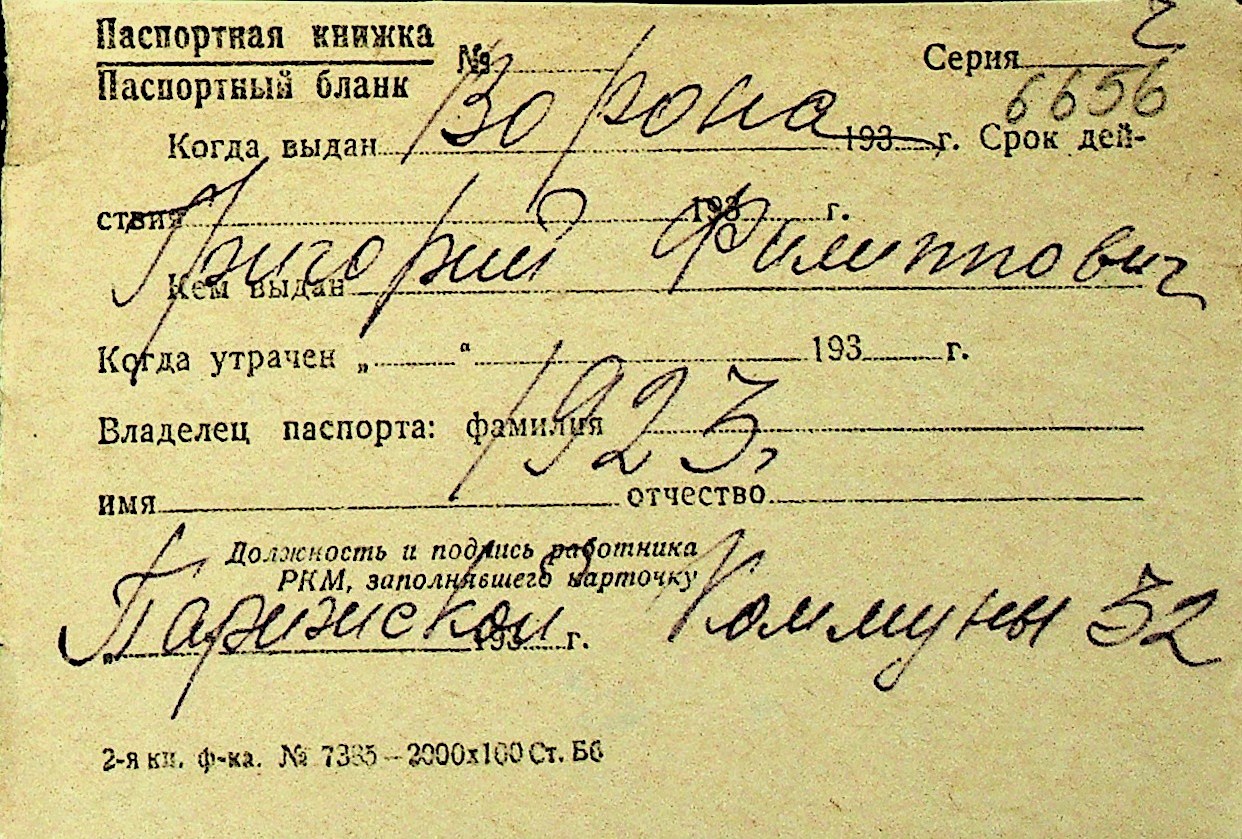 Паспортная книжка
Паспортный бланк
№ Серия
6656
Ворона
Когда выдан 193 г. Срок дей-
ствия 193 г.
Григорий Филиппович
Кем выдан
Когда утрачен „ “ 193 г.
1923,
Владелец паспорта: фамилия
имя отчество
Должность и подпись работника
РКМ, заполнявшего карточку
Парижской Коммуны 32
„ 193 г.
2-я кн. ф-ка. № 7385—2000х100 Ст. Бб